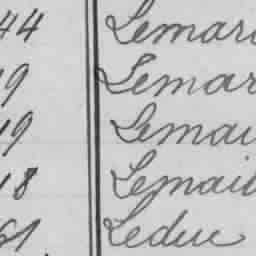 44 Lemari
9 Lemar
19 Lemai
18 Lemail
61 Leduc